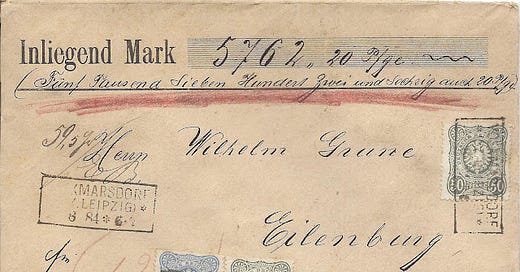 Inliegend Mark 5762,, 20 Pfge
(Fünf Tausend Sieben Hundert Zwei und Sechzig auch 20 Pfge)
Herrn Wilhelm Grune
50 50
(MARSDORF
(LEIPZIG) *
8 84 * 6-7
Eilenburg